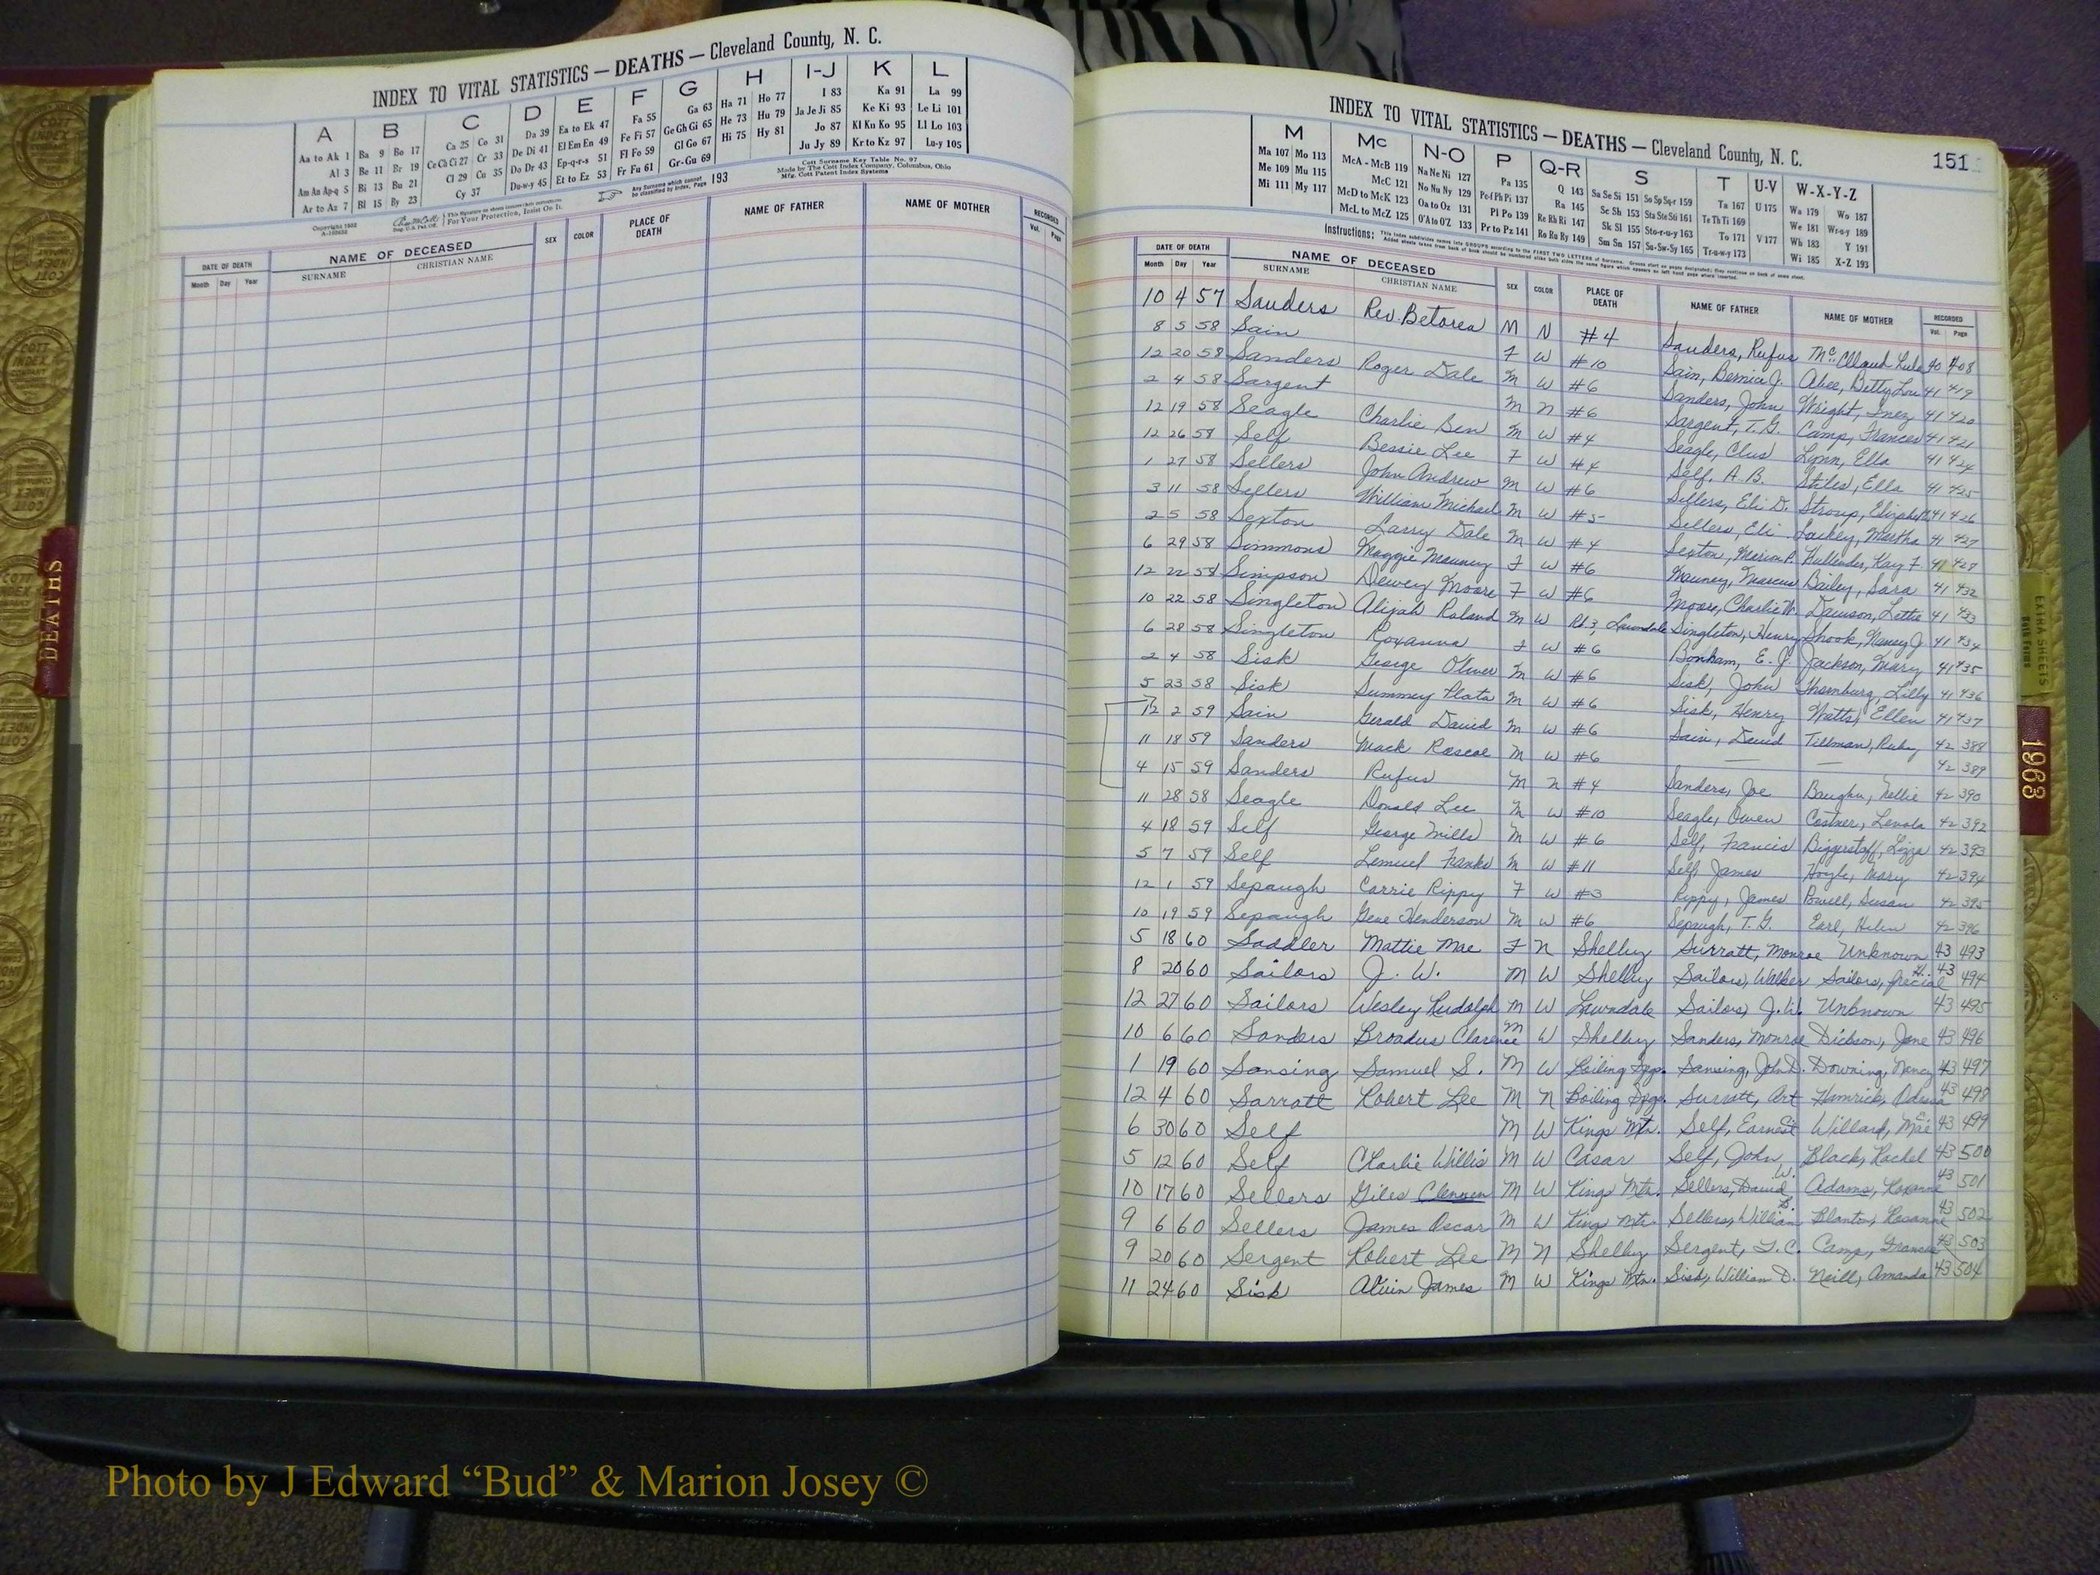 INDEX TO VITAL STATISTICS — DEATHS — Cleveland County, N. C.
A B C D E F G H I-J K L
Aa to Ak 1 Ba 9 Bo 17 Ca 25 Co 31 Da 39 Ea to Ek 47 Fa 55 Ga 63 Ha 71 Ho 77 I 83 Ka 91 La 99
Al 3 Be 11 Br 19 Ce Ch Ci 27 Cr 33 De Di 41 El Em En 49 Fe Fi 57 Ge Gh Gi 65 He 73 Hu 79 Ja Je Ji 85 Ke Ki 93 Le Li 101
Am An Ap-q 5 Bi 13 Bu 21 Cl 29 Cu 35 Do Dr 43 Ep-q-r-s 51 Fl Fo 59 Gl Go 67 Hi 75 Hy 81 Jo 87 Kl Kn Ko 95 Ll Lo 103
Ar to Az 7 Bl 15 By 23 Cy 37 Du-w-y 45 Et to Ez 53 Fr Fu 61 Gr-Gu 69 Ju Jy 89 Kr to Kz 97 Lu-y 105
Copyright 1952
For Your Protection, Insist On It.
Any Surname which cannot be classified by Index, Page 193
Cott Surname Key Table No. 97
Made by The Cott Index Company, Columbus, Ohio
Mfg. Cott Patent Index Systems
DATE OF DEATH NAME OF DECEASED SEX COLOR PLACE OF DEATH NAME OF FATHER NAME OF MOTHER RECORDED
Month Day Year SURNAME CHRISTIAN NAME Vol. Page
DEATHS
INDEX TO VITAL STATISTICS — DEATHS — Cleveland County, N. C.
151
M Mc N-O P Q-R S T U-V W-X-Y-Z
Ma 107 Mo 113 McA - McB 119 Na Ne Ni 127 Pa 135 Q 143 Sa Se Si 151 So Sp Sq-r 159 Ta 167 U 175 Wa 179 Wo 187
Me 109 Mu 115 McC 121 No Nu Ny 129 Pe-f Ph Pi 137 Ra 145 Sc Sh 153 Sta Ste Sti 161 Te Th Ti 169 We 181 Wr-u-y 189
Mi 111 My 117 McD to McK 123 Oa to Oz 131 Pl Po 139 Re Rh Ri 147 Sk Sl 155 Sto-r-u-y 163 To 171 V 177 Wh 183 Y 191
McL to McZ 125 O'A to O'Z 133 Pr to Pz 141 Ro Ru Ry 149 Sm Sn 157 Su-Sw-Sy 165 Tr-u-w-y 173 Wi 185 X-Z 193
Instructions:
DATE OF DEATH NAME OF DECEASED SEX COLOR PLACE OF DEATH NAME OF FATHER NAME OF MOTHER RECORDED
Month Day Year SURNAME CHRISTIAN NAME Vol. Page
10 4 57 Sanders Rev. M N #4 Sanders, Rufus 40 408
8 5 58 Sain F W #10 Sain, Bernice J. Abee, Betty Lou 41 419
12 20 58 Sanders Roger Dale M W #6 Sanders, John Wright, Inez 41 420
2 4 58 Sargent M N #6 Sargent, T.G. Camp, Frances 41 421
12 19 58 Seagle Charlie Ben M W #4 Seagle, Clus Lynn, Ella 41 424
12 26 58 Self Bessie Lee F W #4 Self, A. B. Stiles, Ella 41 425
1 27 58 Sellers John Andrew M W #6 Sellers, Eli D. Stroup, 41 426
3 11 58 Sellers William Michael M W #5 Sellers, Eli Lackey, Martha 41 427
2 5 58 Sexton Larry Dale M W #4 Sexton, Marion P. Hullender, Kay F. 41 428
6 29 58 Simmons Maggie Mauney F W #6 Mauney, Marcus Bailey, Sara 41 432
12 22 58 Simpson Dewey Moore F W #6 Moore, Charlie W. Dawson, Lettie 41 433
10 22 58 Singleton Alijah Roland M W Rt 3, Lawndale Singleton, Henry Shook, Nancy J. 41 434
6 28 58 Singleton Roxanna F W #6 Bonham, E. J. Jackson, Mary 41 435
2 4 58 Sisk George Oliver M W #6 Sisk, John Thornburg, Lilly 41 436
5 23 58 Sisk Summey Plato M W #6 Sisk, Henry Watts, Ellen 41 437
12 2 59 Sain Gerald David M W #6 Sain, David Tillman, Ruby 42 388
11 18 59 Sanders Mack Roscoe M W #6 — — 42 389
4 15 59 Sanders Rufus M N #4 Sanders, Joe Baughn, Nellie 42 390
11 28 58 Seagle Donald Lee M W #10 Seagle, Owen Costner, Lenola 42 392
4 18 59 Self George Mills M W #6 Self, Francis Biggerstaff, Lizza 42 393
5 7 59 Self Lemuel Franks M W #11 Self, James Hoyle, Mary 42 394
12 1 59 Sepaugh Carrie Rippy F W #3 Rippy, James Powell, Susan 42 395
10 19 59 Sepaugh Gene Henderson M W #6 Sepaugh, T. G. Earl, Helen 42 396
5 18 60 Saddler Mattie Mae F N Shelby Surratt, Monroe Unknown 43 493
8 20 60 Sailors J. W. M W Shelby Sailors, Walker Sailors, Precial H. 43 494
12 27 60 Sailors Wesley Rudolph M W Lawndale Sailors, J. W. Unknown 43 495
10 6 60 Sanders Broadus Clarence M W Shelby Sanders, Monroe Dickson, Jane 43 496
1 19 60 Sansing Samuel S. M W Boiling Spgs. Sansing, John D. Downing, Nancy 43 497
12 4 60 Sarratt Robert Lee M N Boiling Spgs. Surratt, Art Hamrick, 43 498
6 30 60 Self M W Kings Mtn. Self, Earnest C. Willard, Mae 43 499
5 12 60 Self Charlie Willis M W Casar Self, John Black, Rachel 43 500
10 17 60 Sellers Giles M W Kings Mtn. Sellers, David W. Adams, Roxanne 43 501
9 6 60 Sellers James Oscar M W Kings Mtn. Sellers, William D. Blanton, Rosanne 43 502
9 20 60 Sergent Robert Lee M N Shelby Sergent, T. C. Camp, Frances 43 503
11 24 60 Sisk Alvin James M W Kings Mtn. Sisk, William D. Neill, Amanda 43 504
EXTRA SHEETS
1963
Photo by J Edward “Bud” & Marion Josey ©